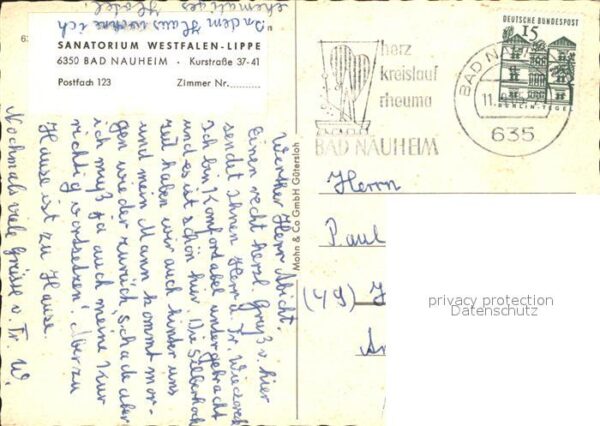 In dem Haus wohne ich
ehemaliges Hotel.
SANATORIUM WESTFALEN-LIPPE
6350 BAD NAUHEIM • Kurstraße 37-41
Postfach 123 Zimmer Nr.
Werther Herr Abicht,
Einen recht herzl Gruß v. hier
sendet Ihnen Herr u. Fr.
Ich bin Komfortabel untergebracht
und es ist schön hier. Die Silberhoch
zeit haben wir auch hinder uns
und mein Mann kommt mor-
gen wieder zurück schade aber
ich muß ja auch meine Kur
richtig vortsetzen! Aber zu
Hause ist zu Hause.
Nochmals viele Grüsse v. Fr. W.
Mohn & Co GmbH Gütersloh
herz
kreislauf
rheuma
BAD NAUHEIM
BAD NA
11.
635
DEUTSCHE BUNDESPOST
15
BERLIN-TEGEL
Herrn
Paul
(49) H
privacy protection
Datenschutz